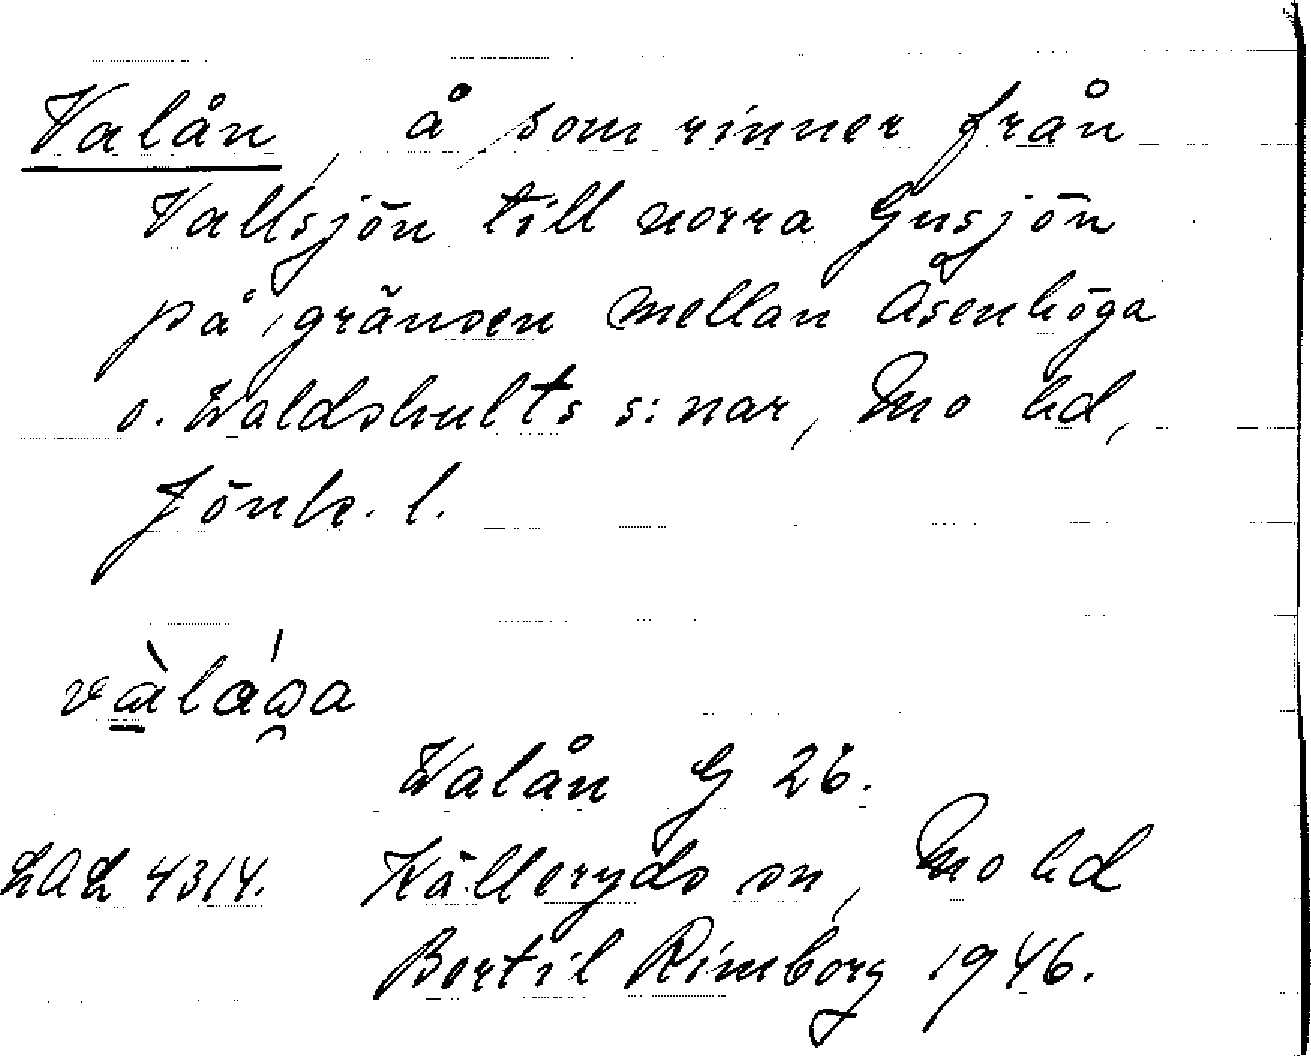 Valån, å som rinner från
Vallsjön till norra Gusjön
på gränsen mellan Åsenhöga
o. Valdshults s:nar, Mo hd,
Jönk. l.
Valån G 26.
LAL 4314. Källeryds sn, Mo hd
Bertil Rimborg 1946.